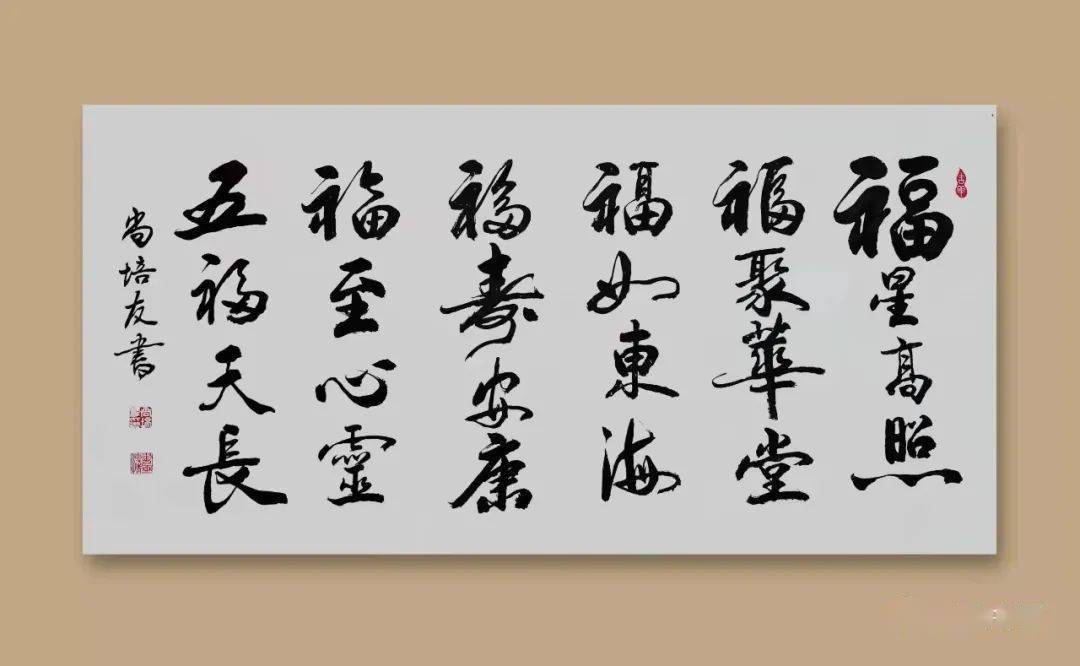 福星高照
福聚華堂
福如東海
福壽安康
福至心靈
五福天長
尚培友書